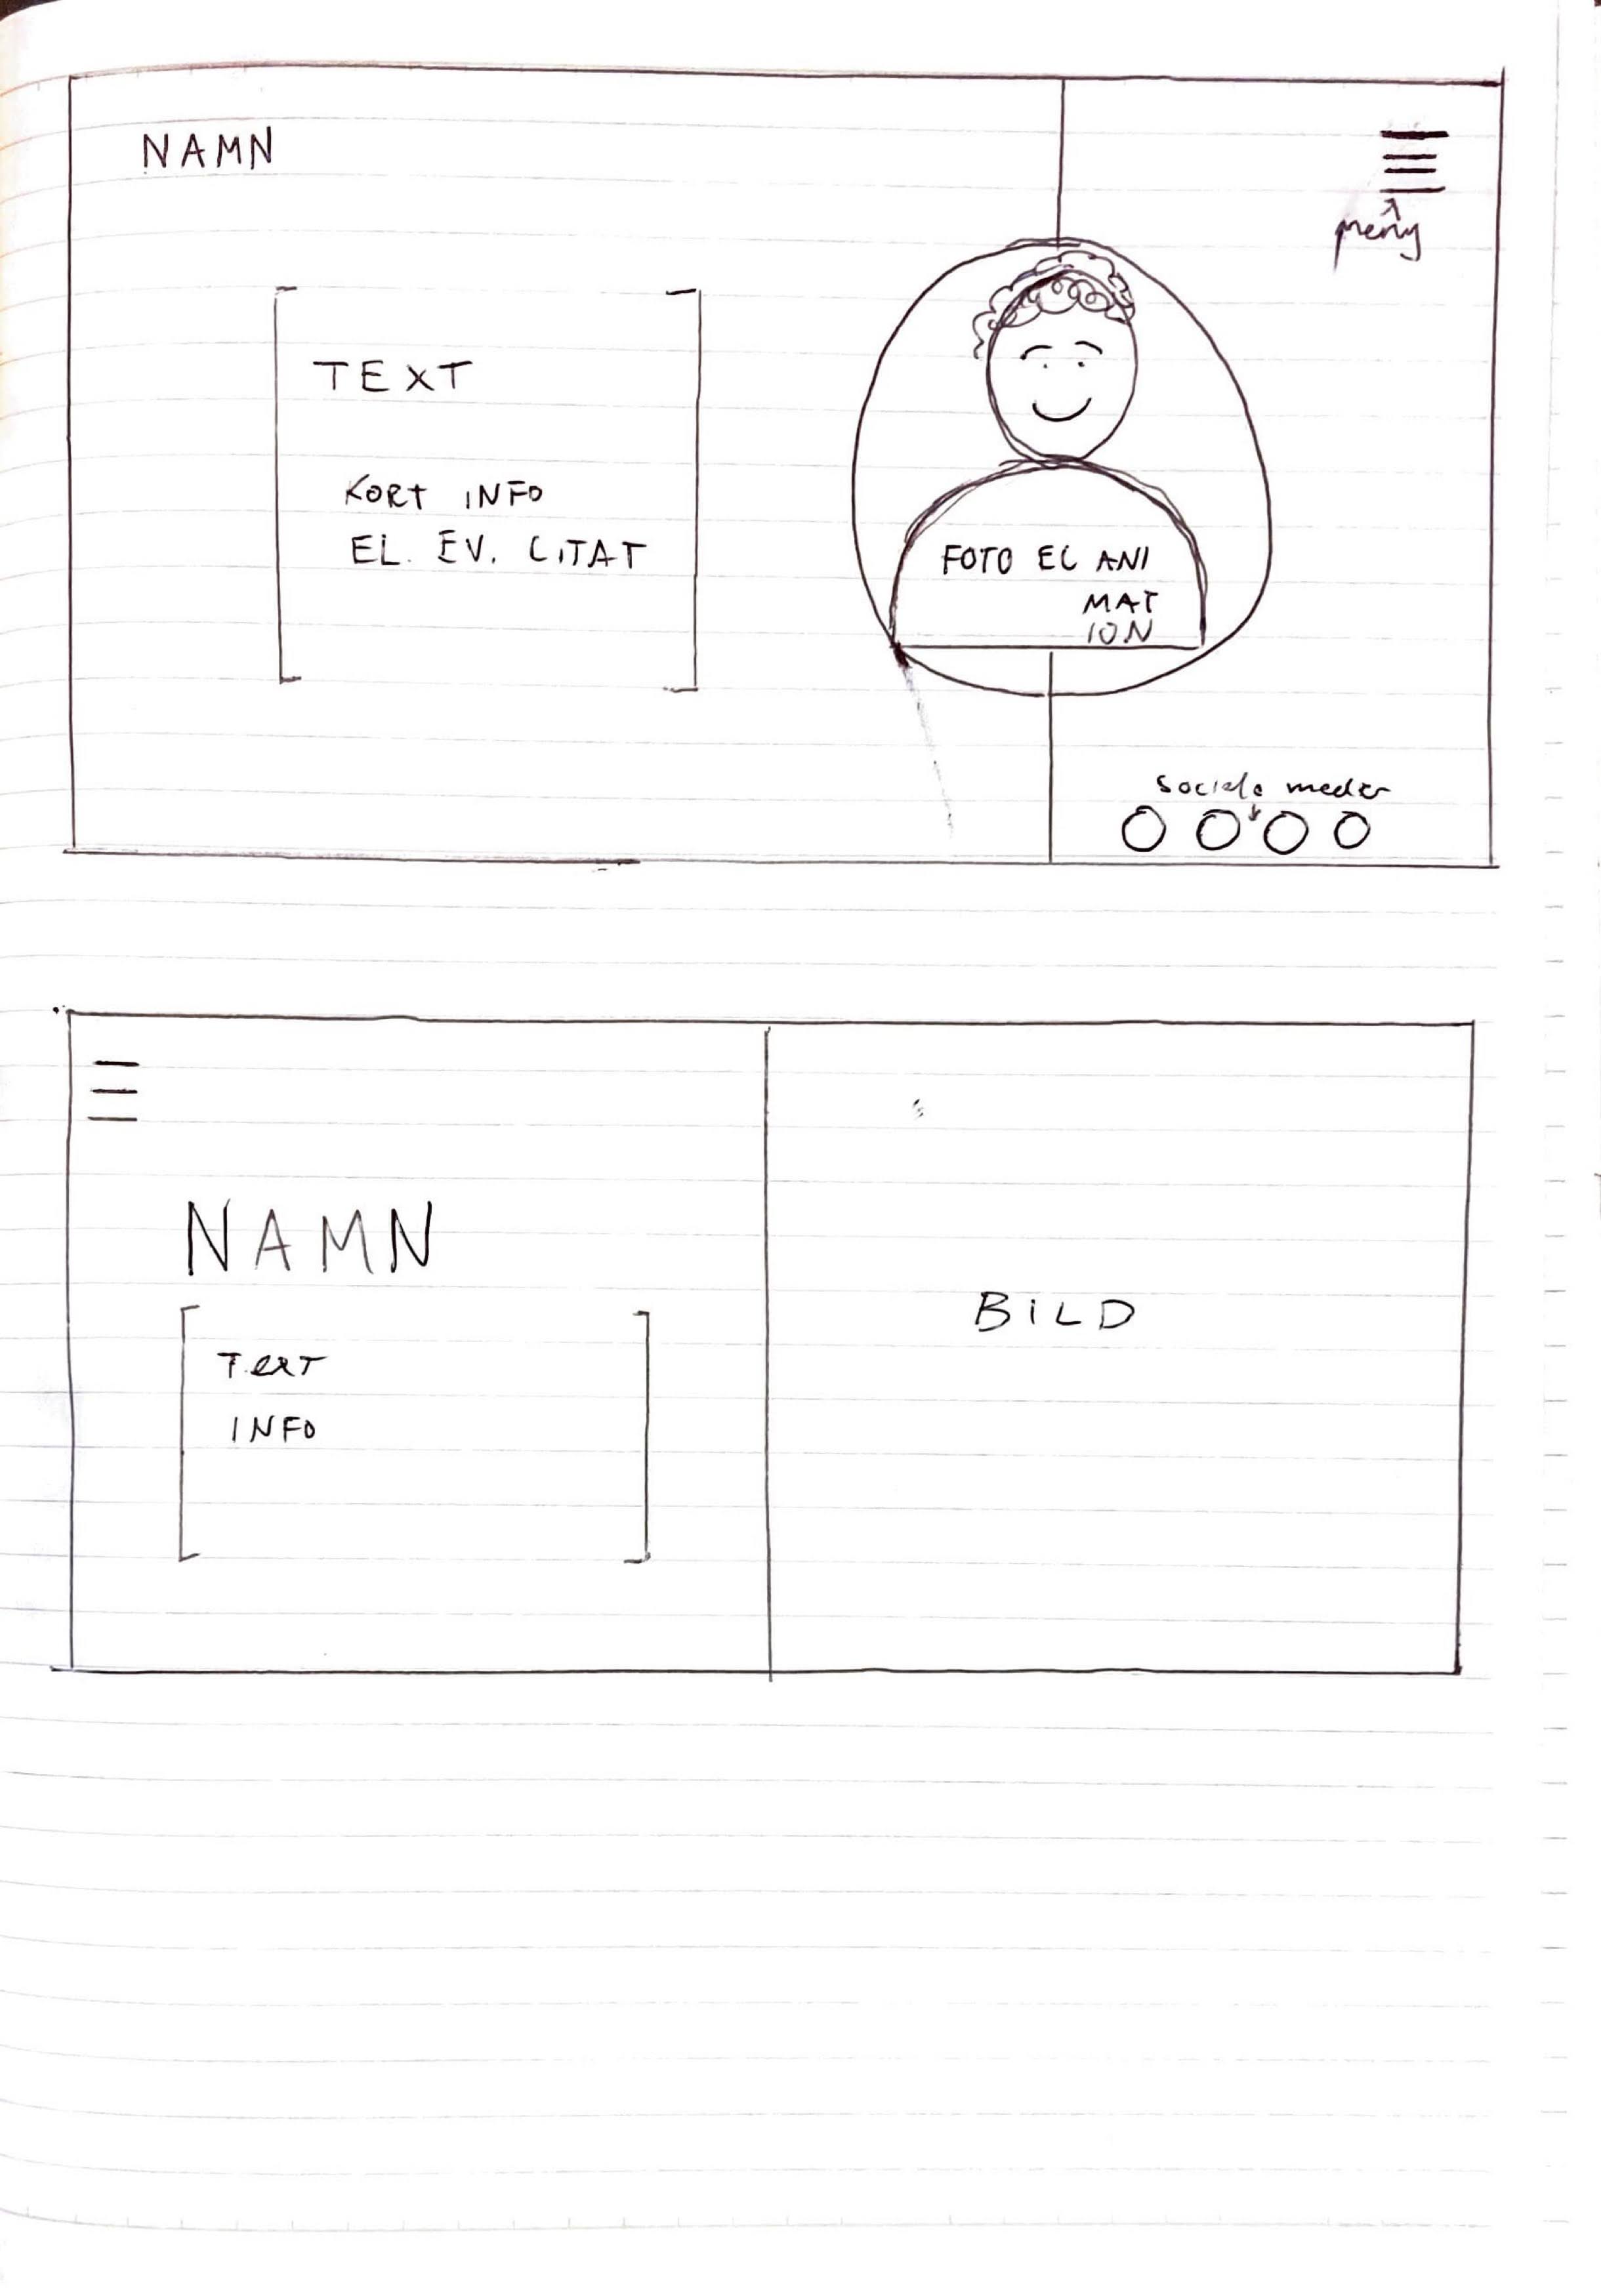 NAMN
meny
TEXT
KORT INFO
EL. EV. CITAT
FOTO EL ANI
MAT
ION
Sociala medier
NAMN
TEXT
INFO
BILD